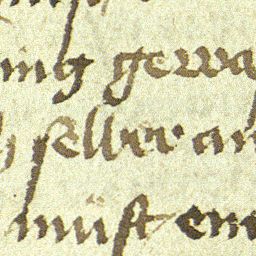 ing gewa
selber an
müst ene